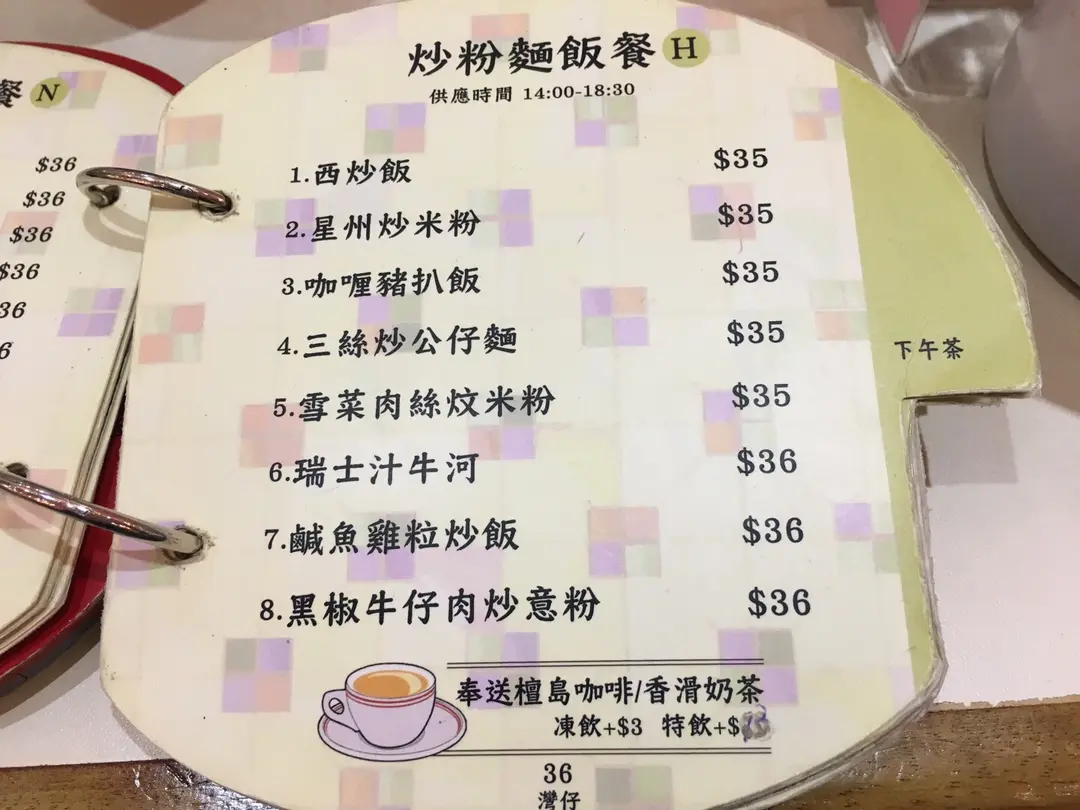 炒粉麵飯餐 H
供應時間 14:00-18:30
1.西炒飯 $35
2.星州炒米粉 $35
3.咖喱豬扒飯 $35
4.三絲炒公仔麵 $35
5.雪菜肉絲炆米粉 $35
6.瑞士汁牛河 $36
7.鹹魚雞粒炒飯 $36
8.黑椒牛仔肉炒意粉 $36
奉送檀島咖啡/香滑奶茶
凍飲+$3 特飲+$
36
灣仔
下午茶
餐 N
$36
$36
$36
$36
36
6